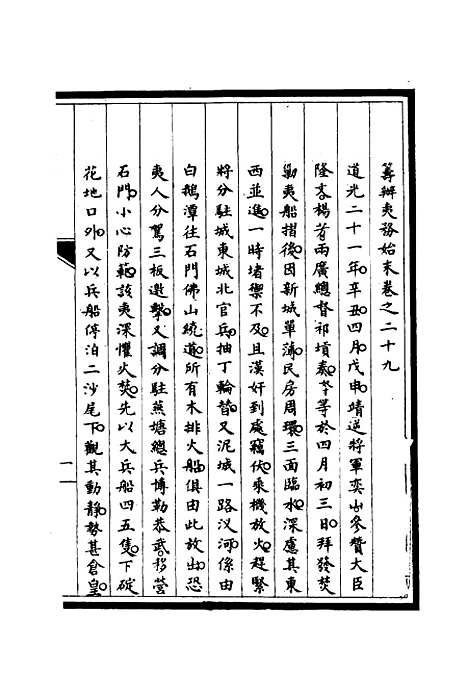 籌辦夷務始末卷之二十九
道光二十一年辛丑四月戊申靖逆將軍奕山參贊大臣
隆文楊芳兩廣總督祁𡎴奏等於四月初三日拜發焚
勦夷船摺後因新城單薄民房周環三面臨水深慮其東
西並進一時堵禦不及且漢奸到處竊伏乘機放火趕緊
將分駐城東城北官兵抽丁輪替又泥城一路汊河係由
白鵝潭往石門佛山繞道所有木排火船俱由此放出恐
夷人分駕三板邀擊又調分駐燕塘總兵博勒恭武移營
石門小心防範該夷深懼火焚先以大兵船四五隻下碇
花地口外又以兵船停泊二沙尾下觀其動靜勢甚倉皇
一